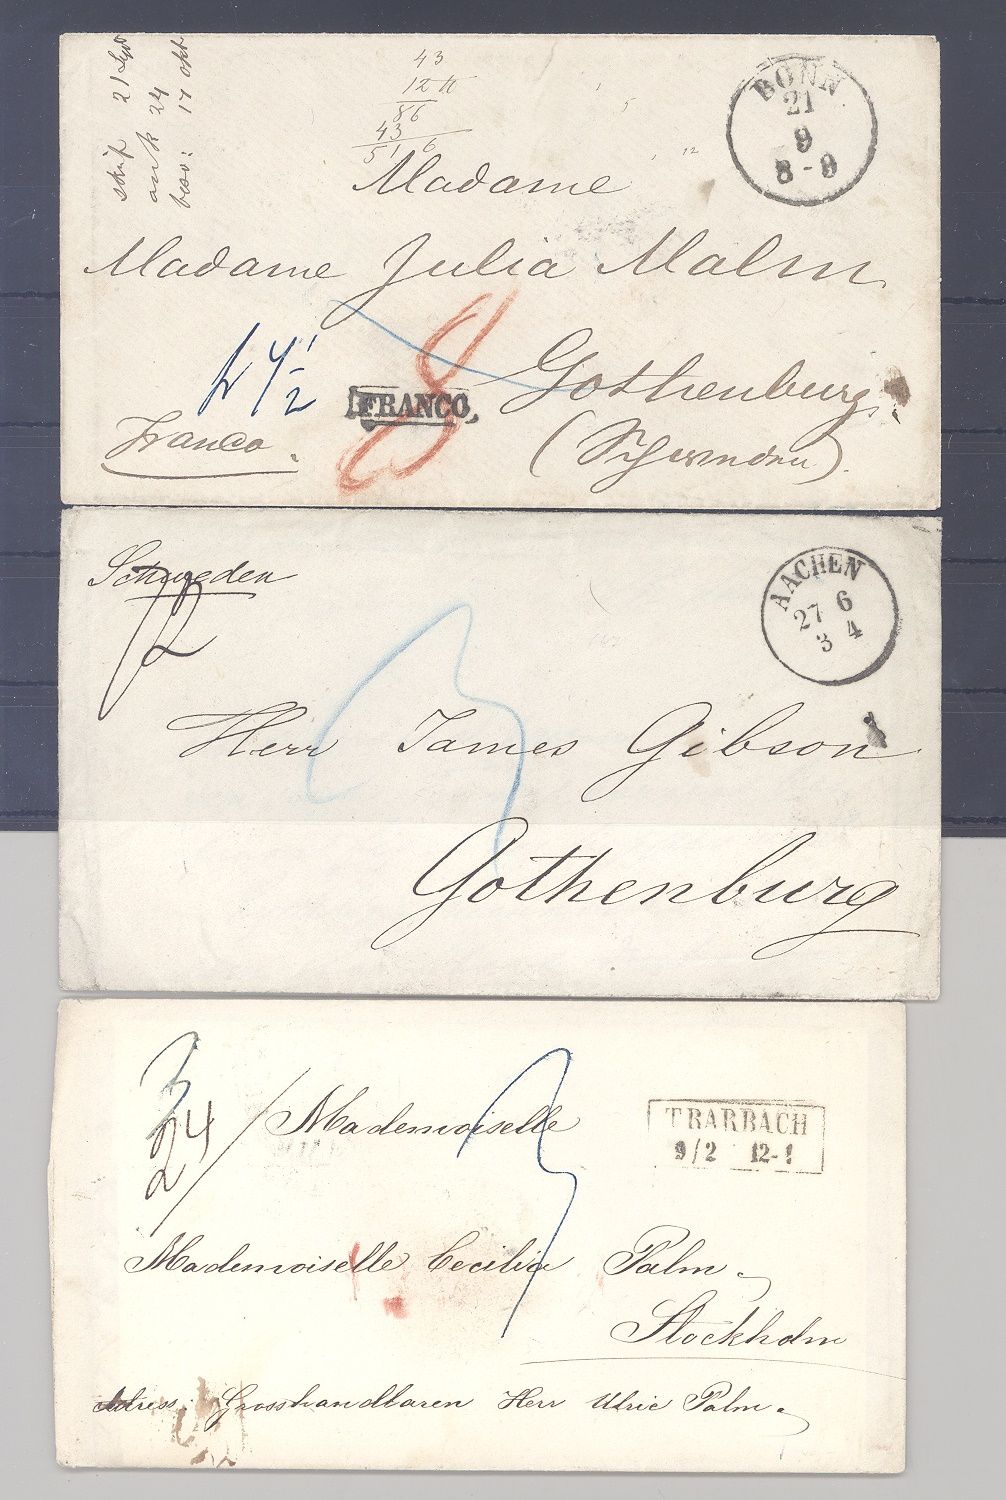 21
ank 24
besv: 17 okt
43
12
86
43
516
BONN
21
9
8-9
Madame
Madame Julia Malm
8
7 1/2
FRANCO
Gothenburg
Franco
Schweden
AACHEN
27 6
3 4
3
Herr James Gibson
Gothenburg
3
24
Mademoiselle
3
TRARBACH
9/2 12-1
Mademoiselle Cecilia Palm
Stockholm
Adress: Grosshandlaren Herr Ulric Palm